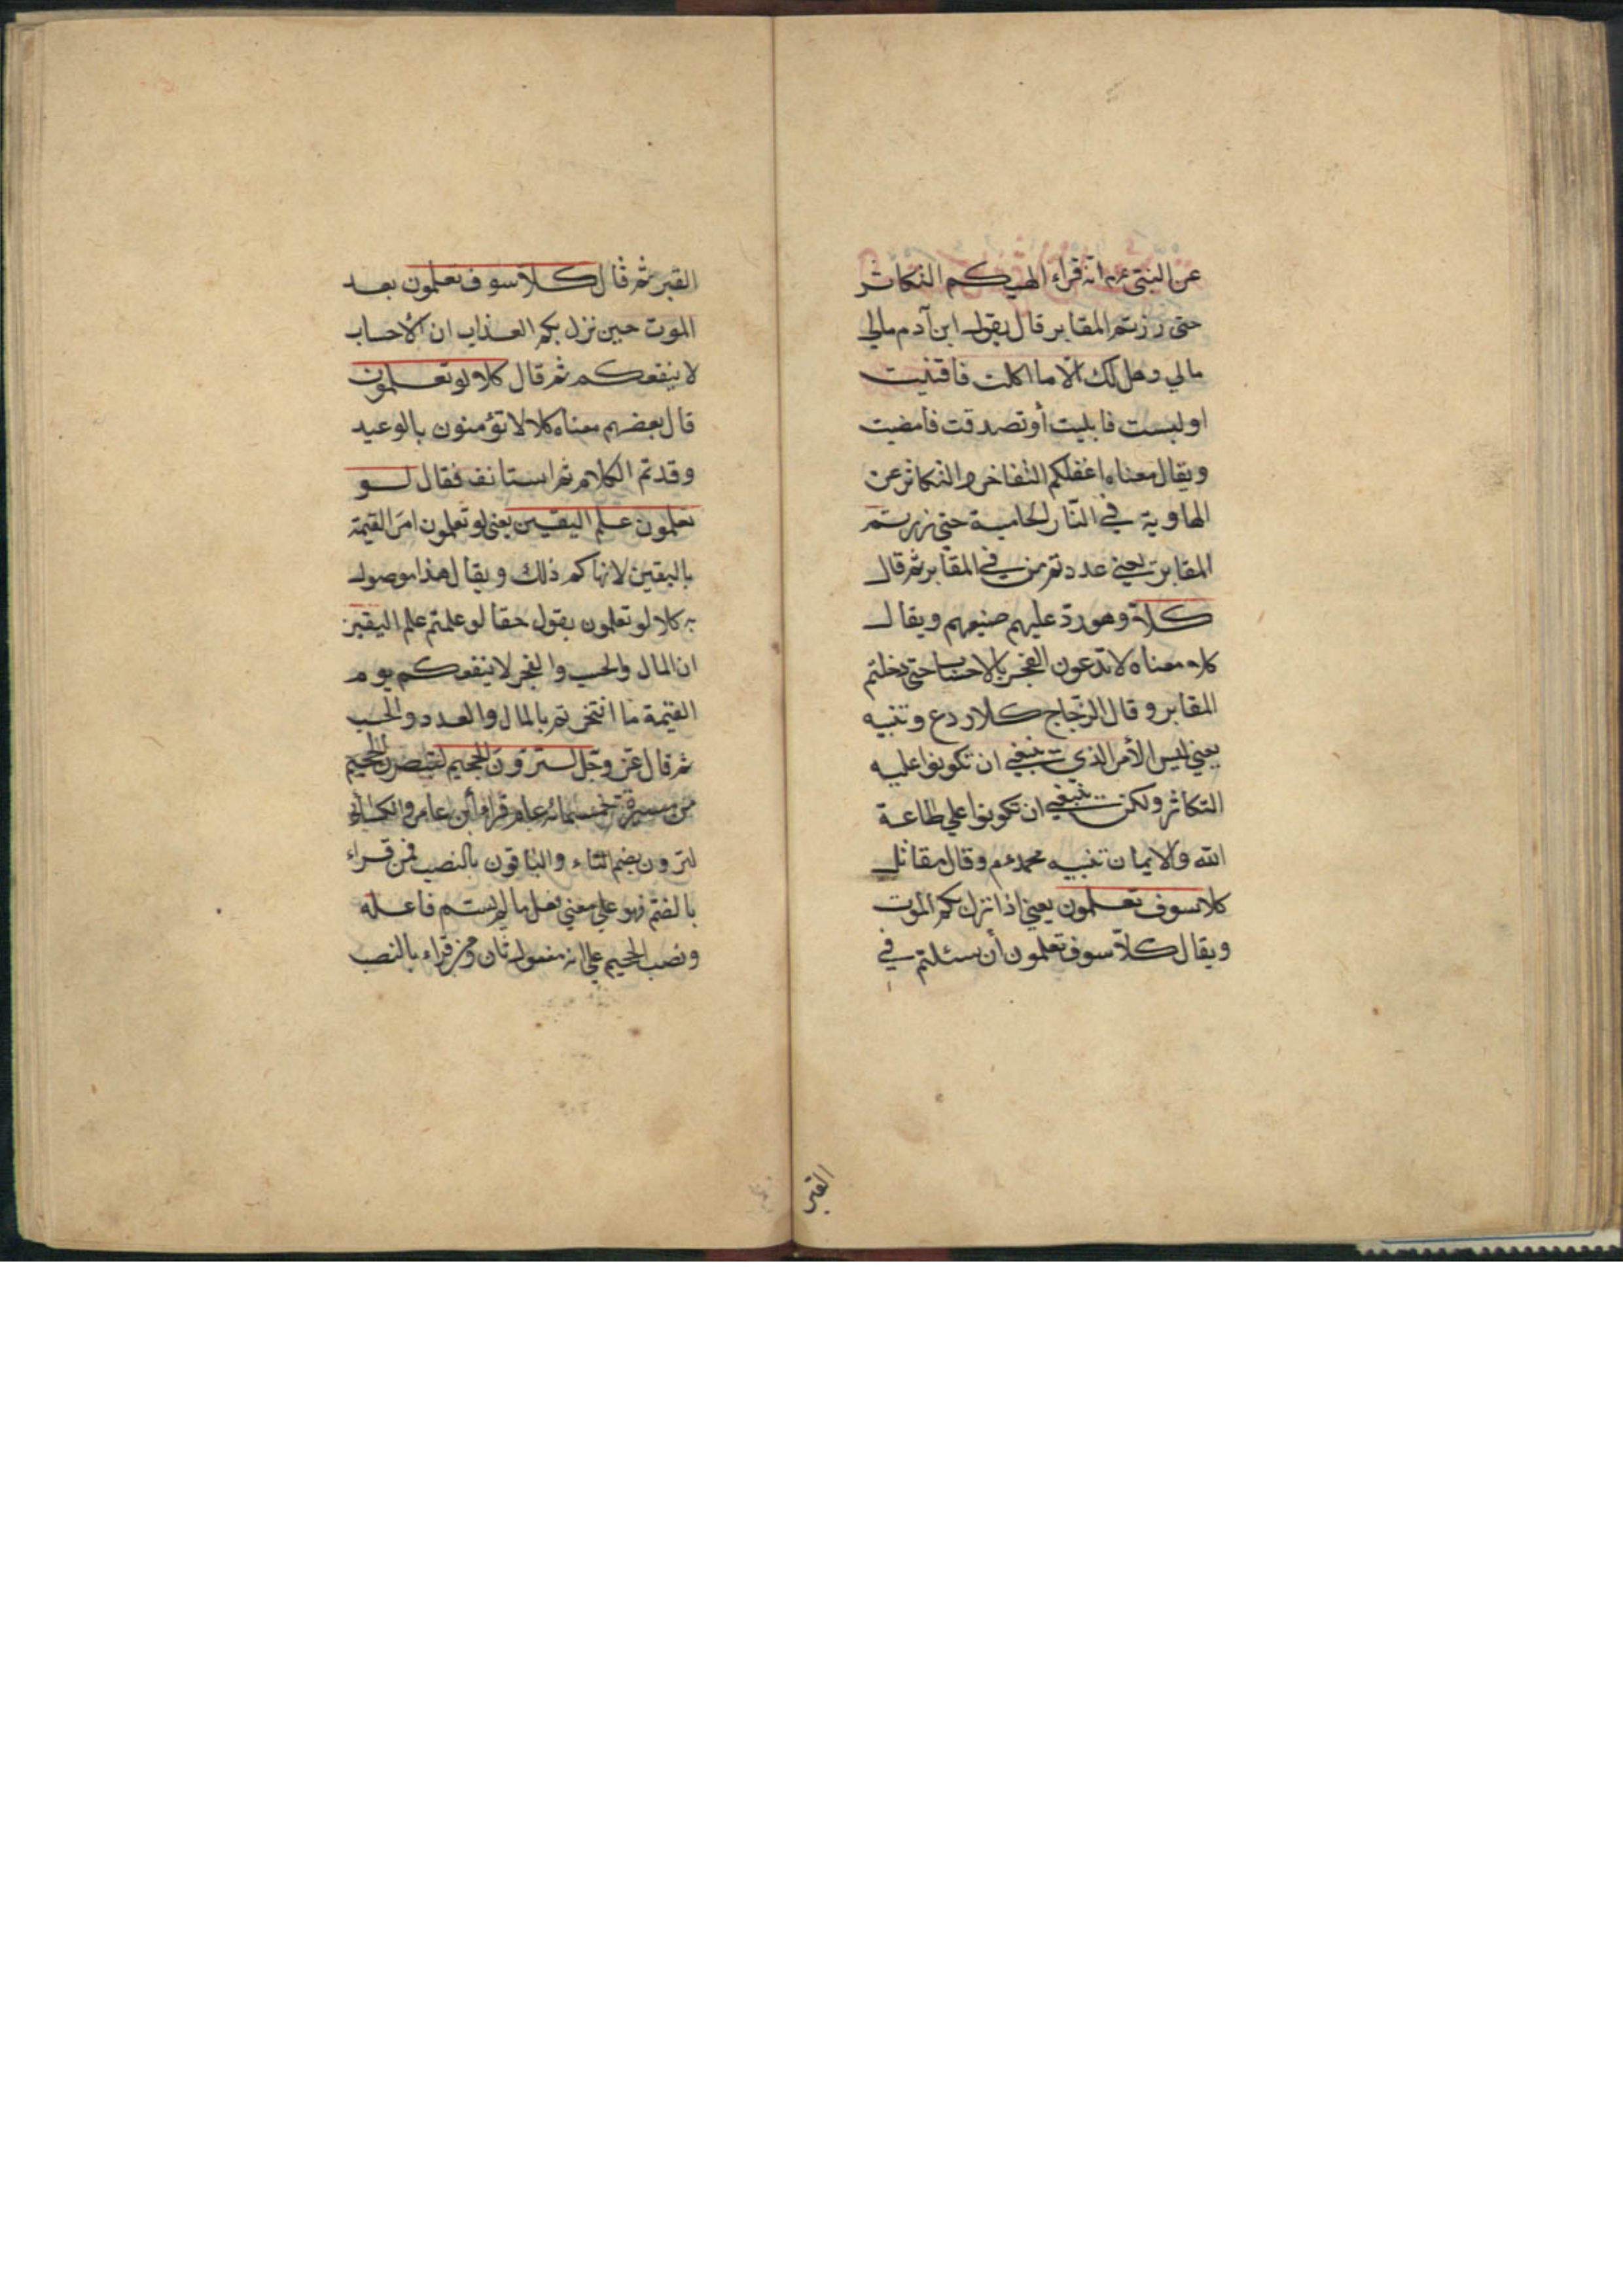 عن النبي عم انه قراء الهيكم التكاثر
حتى زرتم المقابر قال يقول ابن آدم مالي
مالي وهل لك الا ما اكلت فافنيت
او لبست فابليت أو تصدقت فامضيت
ويقال معناه اغفلكم التفاخر والتكاثر عن
الهاوية في النار الحامية حتى زرتم
المقابر يعني عددتم من في المقابر ثم قال
كلا وهو رد عليهم صنيعهم ويقال
كلا معناه لا تدعون الفخر بالاحساب حتى دخلتم
المقابر وقال الزجاج كلا ردع وتنبيه
يعني ليس الأمر الذي ينبغي ان تكونوا عليه
التكاثر ولكن ينبغي ان تكونوا علي طاعة
الله والايمان بنبيه محمد عم وقال مقاتل
كلا سوف تعلمون يعني اذا نزل بكم الموت
ويقال كلا سوف تعلمون أن سئلتم في
القبر
القبر ثم قال كلا سوف تعلمون بعد
الموت حين نزل بكم العذاب ان الأحساب
لا ينفعكم ثم قال كلا لو تعلمون
قال بعضهم معناه كلا لا تؤمنون بالوعيد
وقد تم الكلام ثم استانف فقال لو
تعلمون علم اليقين يعني لو تعلمون امر القيمة
باليقين لانهاكم ذلك ويقال هذا موصول
به كلا لو تعلمون يقول حقا لو علمتم علم اليقين
ان المال والحسب والفخر لا ينفعكم يوم
القيمة ما افتخرتم بالمال والعدد والحسب
ثم قال عز وجل لترون الجحيم لتبصرن الجحيم
من مسيرة خمسمائة عام قراء ابن عامر والكسائي
لترون بضم التاء والباقون بالنصب فمن قراء
بالضم فهو علي معني فعل ما لم يسم فاعله
ونصب الجحيم علي انه مفعول ثان ومن قراء بالنصب